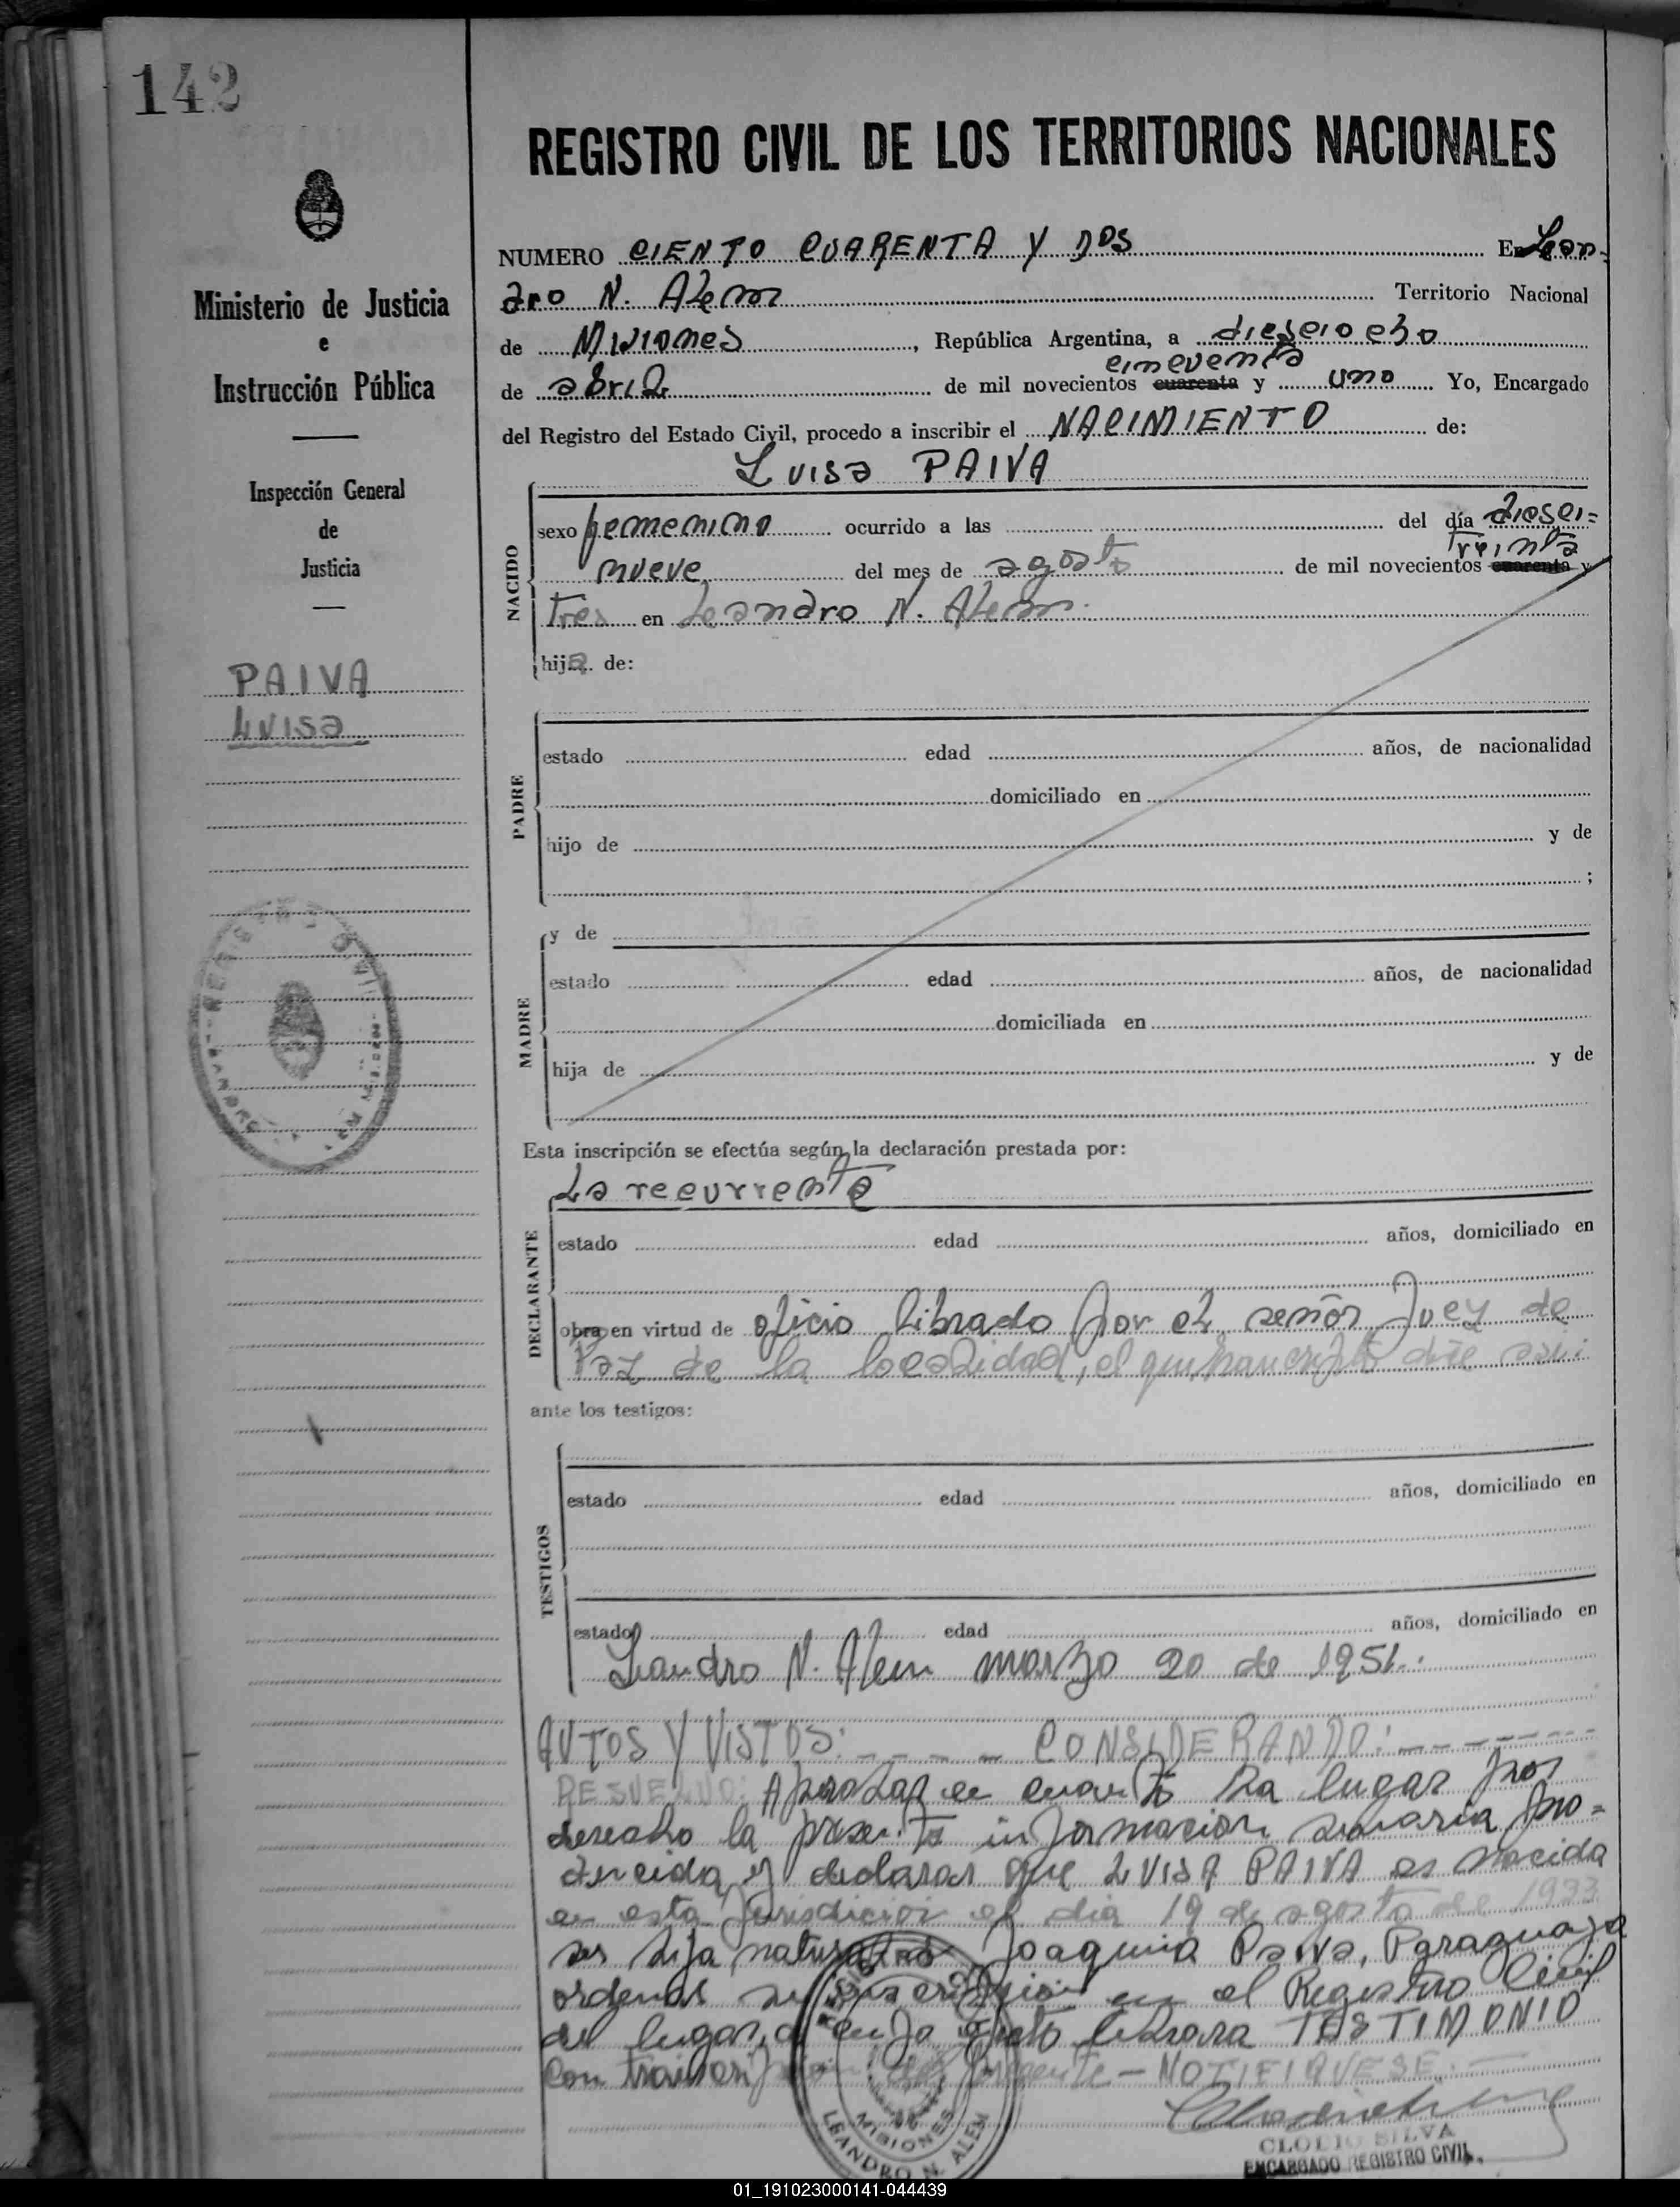 142
Ministerio de Justicia
e
Instrucción Pública
Inspección General
de
Justicia
PAIVA
Luisa
REGISTRO CIVIL DE LOS TERRITORIOS NACIONALES
NUMERO CIENTO CUARENTA Y DOS En Lean-
dro N. Alem Territorio Nacional
de Misiones, República Argentina, a diesciocho
cincuenta
de abril de mil novecientos cuarenta y uno Yo, Encargado
del Registro del Estado Civil, procedo a inscribir el NACIMIENTO de:
Luisa PAIVA
NACIDO
sexo femenino ocurrido a las del día diesei=
treinta
nueve del mes de agosto de mil novecientos cuarenta y
tres en Leandro N. Alem.
hija de:
PADRE
estado edad años, de nacionalidad
domiciliado en
hijo de y de
;
MADRE
y de
estado edad años, de nacionalidad
domiciliada en
hija de y de
Esta inscripción se efectúa según la declaración prestada por:
DECLARANTE
La recurrente
estado edad años, domiciliado en
obra en virtud de oficio librado por el señor Juez de
Paz de la localidad, el que dice asi:
ante los testigos:
TESTIGOS
estado edad años, domiciliado en
estado edad años, domiciliado en
Leandro N. Alem marzo 20 de 1951.
AUTOS Y VISTOS: - - - - CONSIDERANDO: - - - - - -
RESUELVO: Aprobar en cuanto ha lugar por
derecho la presente informacion sumaria pro=
ducida y declarar que LUISA PAIVA es nacida
en esta jurisdicion el dia 19 de agosto de 1933
ser hija natural de Joaquina Paiva, Paraguaya
ordenar su inscripcion en el Registro Civil
del lugar, a cuyo efecto librara TESTIMONIO
con trascripcion del presente - NOTIFIQUESE. -
CLODIO SILVA
ENCARGADO REGISTRO CIVIL
MISIONES
LEANDRO N. ALEM
01_191023000141-044439